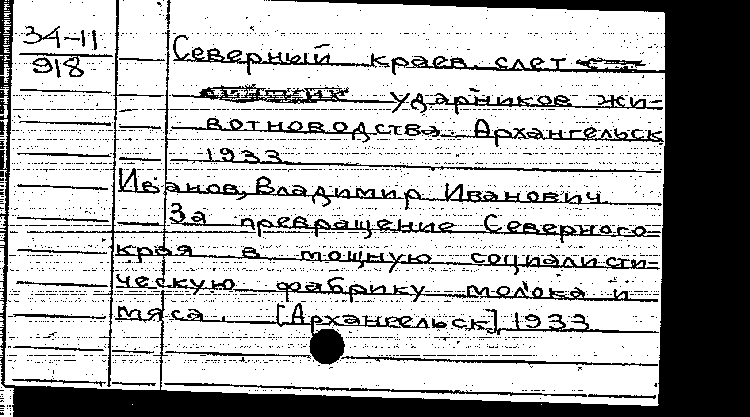 34-11
918
Северный краев. слет
ударников жи-
вотноводства. Архангельск
1933
Иванов, Владимир Иванович
За превращение Северного
края в мощную социалисти-
ческую фабрику молока и
мяса. [Архангельск], 1933